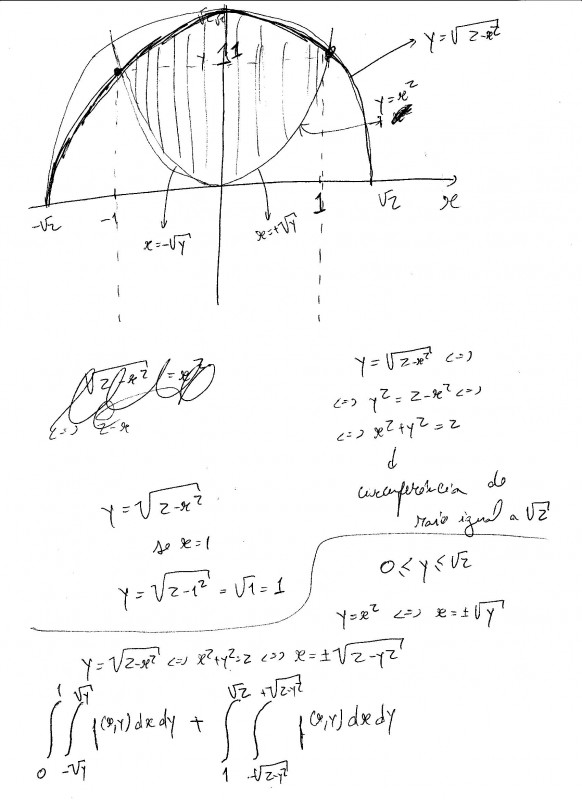 √2
1
y=√(2-x²)
y=x²
-√2
-1
1
√2
x
x=-√y
x=+√y
√(2-x²) = x²
<=> 2-x
y=√(2-x²) <=>
<=> y² = 2-x² <=>
<=> x²+y² = 2
circunferência de
raio igual a √2
y=√(2-x²)
se x=1
y=√(2-1²) = √1 = 1
0 ≤ y ≤ √2
y=x² <=> x=±√y
y=√(2-x²) <=> x²+y²=2 <=> x=±√(2-y²)
∫₀¹ ∫_{-√y}^{√y} f(x,y) dx dy + ∫₁^{√2} ∫_{-√(2-y²)}^{+√(2-y²)} f(x,y) dx dy